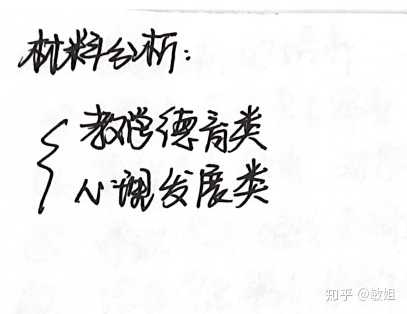 材料分析:
教学德育类
心理发展类
知乎 @敏姐